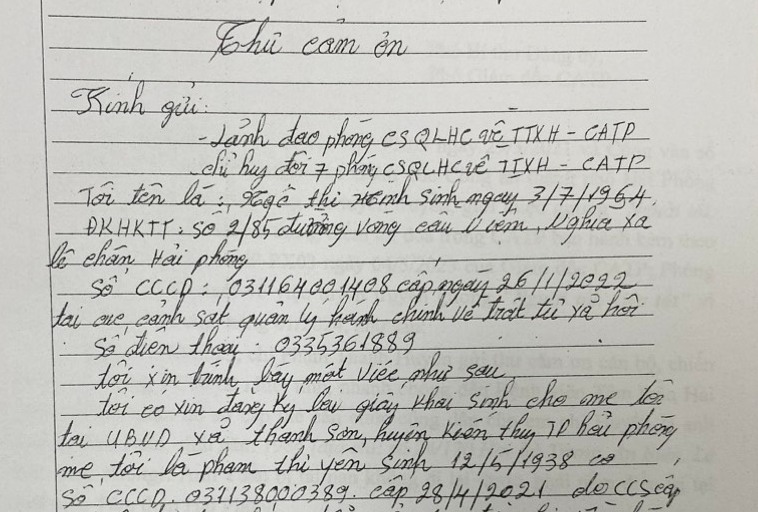 Thư cảm ơn
Kính gửi:
- Lảnh đạo phòng CSQLHC về TTXH - CATP
- chỉ huy đội 7 phòng CSQLHC về TTXH - CATP
Tôi tên là: Ngô thị Hạnh Sinh ngày 3/7/1964.
ĐKHKTT: Số 2/85 đường vòng cầu Niệm, Nghĩa xá
lê chân Hải phòng
Số CCCD: 031164001408 cấp ngày 26/1/2022
tại cục cảnh sát quản lý hành chính về trật tử xả hội
Số điện thoại: 0335361889
tôi xin trình bày một việc như sau
tôi có xin đăng ký lại giấy khai sinh cho mẹ tôi
tại UBND xã thanh sơn, huyện kiến thuỵ TP hải phòng
mẹ tôi là phạm thị yên sinh 12/5/1938 có
số CCCD. 031138000389. cấp 28/4/2021 do CCS cấp